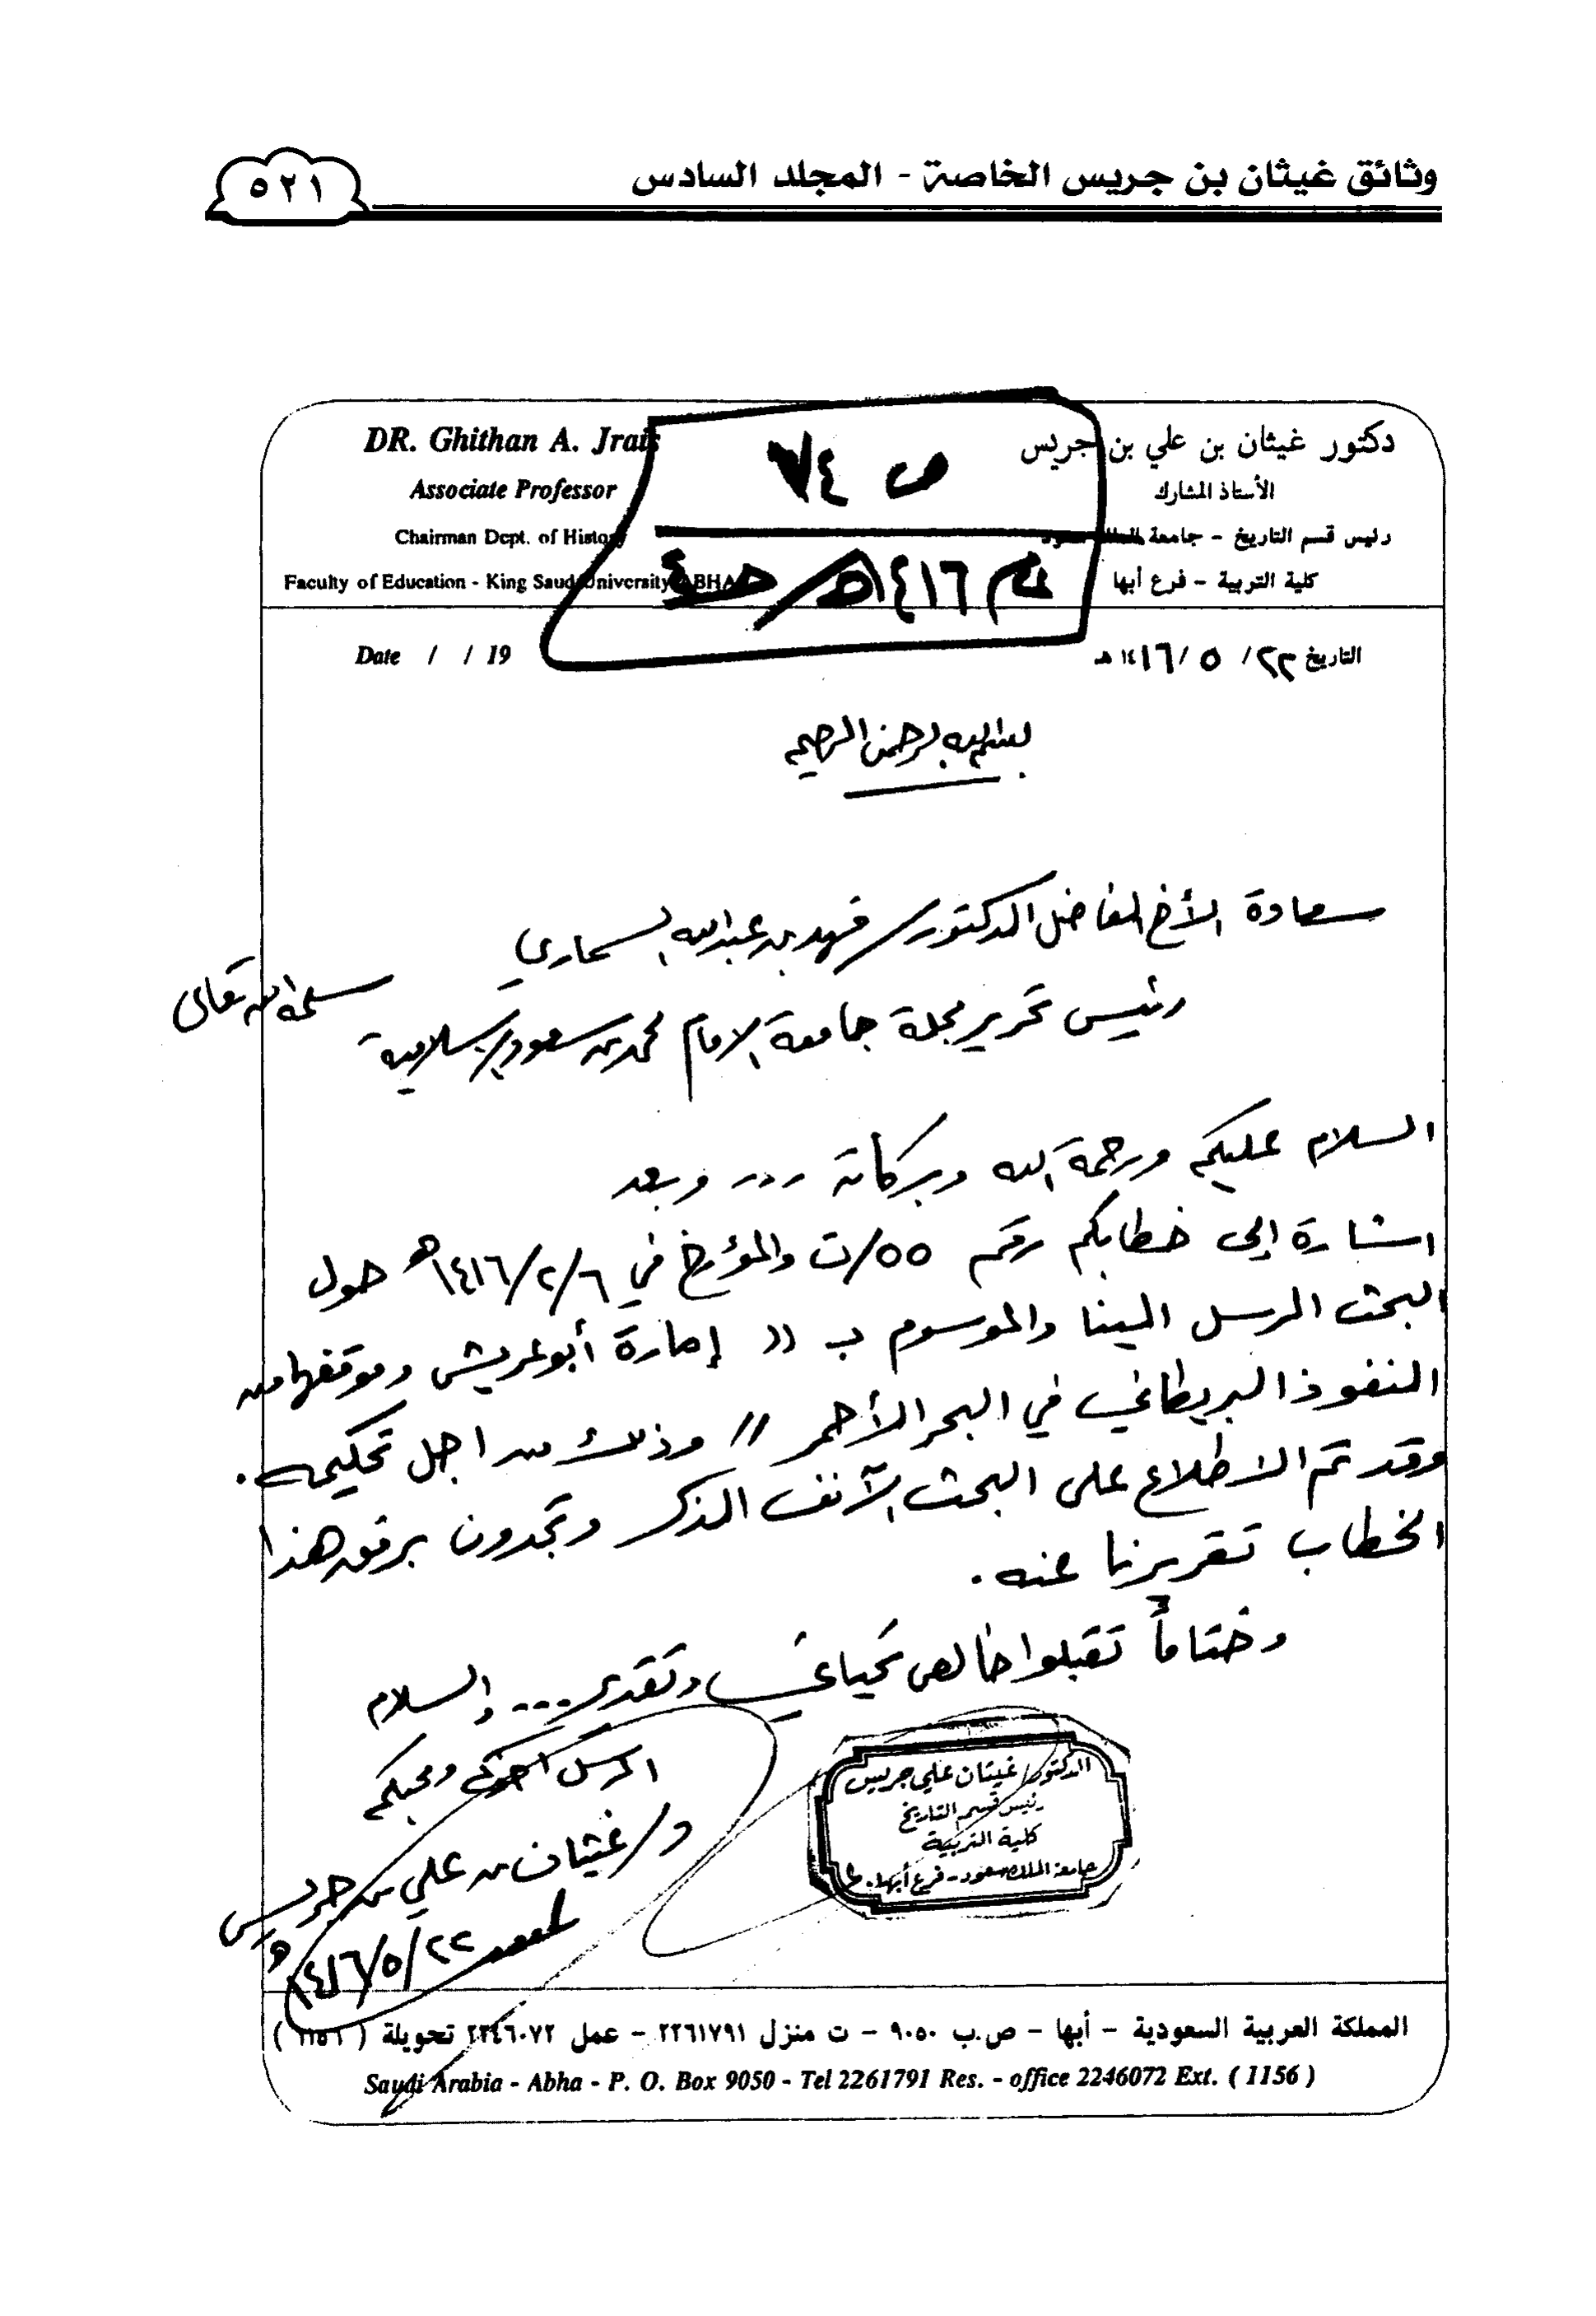 وثائق غيثان بن جريس الخاصة - المجلد السادس
٥٢١
دكتور غيثان بن علي بن جريس
الأستاذ المشارك
رئيس قسم التاريخ - جامعة الملك سعود
كلية التربية - فرع أبها
DR. Ghithan A. Jrais
Associate Professor
Chairman Dept. of History
Faculty of Education - King Saud University ABHA
ص ٧٤
عام ١٤١٦هـ / حـ ٤
التاريخ ٢٢ / ٥ / ١٤١٦ هـ
Date / / 19
بسم الله الرحمن الرحيم
سعادة الأخ الفاضل الدكتور / فهد بن عبدالله السماري
رئيس تحرير مجلة جامعة الامام محمد بن سعود الاسلامية
سلمه الله تعالى
السلام عليكم ورحمة الله وبركاته .... وبعد
اشارة إلى خطابكم رقم ٥٥/ت والمؤرخ في ١٤١٦/٢/٦هـ حول
البحث المرسل الينا والموسوم بـ (( إمارة أبوعريش وموقفها من
النفوذ البريطاني في البحر الأحمر )) وذلك من اجل تحكيمه .
وقد تم الاطلاع على البحث الآنف الذكر وتجدون برفق هذا
الخطاب تقريرنا عنه .
وختاماً تقبلوا خالص تحياتي وتقديري .... والسلام
المرسل اخوكم ومحبكم
د/ غيثان بن علي بن جريس
١٤١٦/٥/٢٢هـ
الدكتور/ غيثان علي جريس
رئيس قسم التاريخ
كلية التربية
جامعة الملك سعود - فرع أبها
المملكة العربية السعودية - أبها - ص.ب ٩٠٥٠ - ت منزل ٢٢٦١٧٩١ - عمل ٢٢٤٦٠٧٢ تحويلة ( ١١٥٦ )
Saudi Arabia - Abha - P. O. Box 9050 - Tel 2261791 Res. - office 2246072 Ext. ( 1156 )